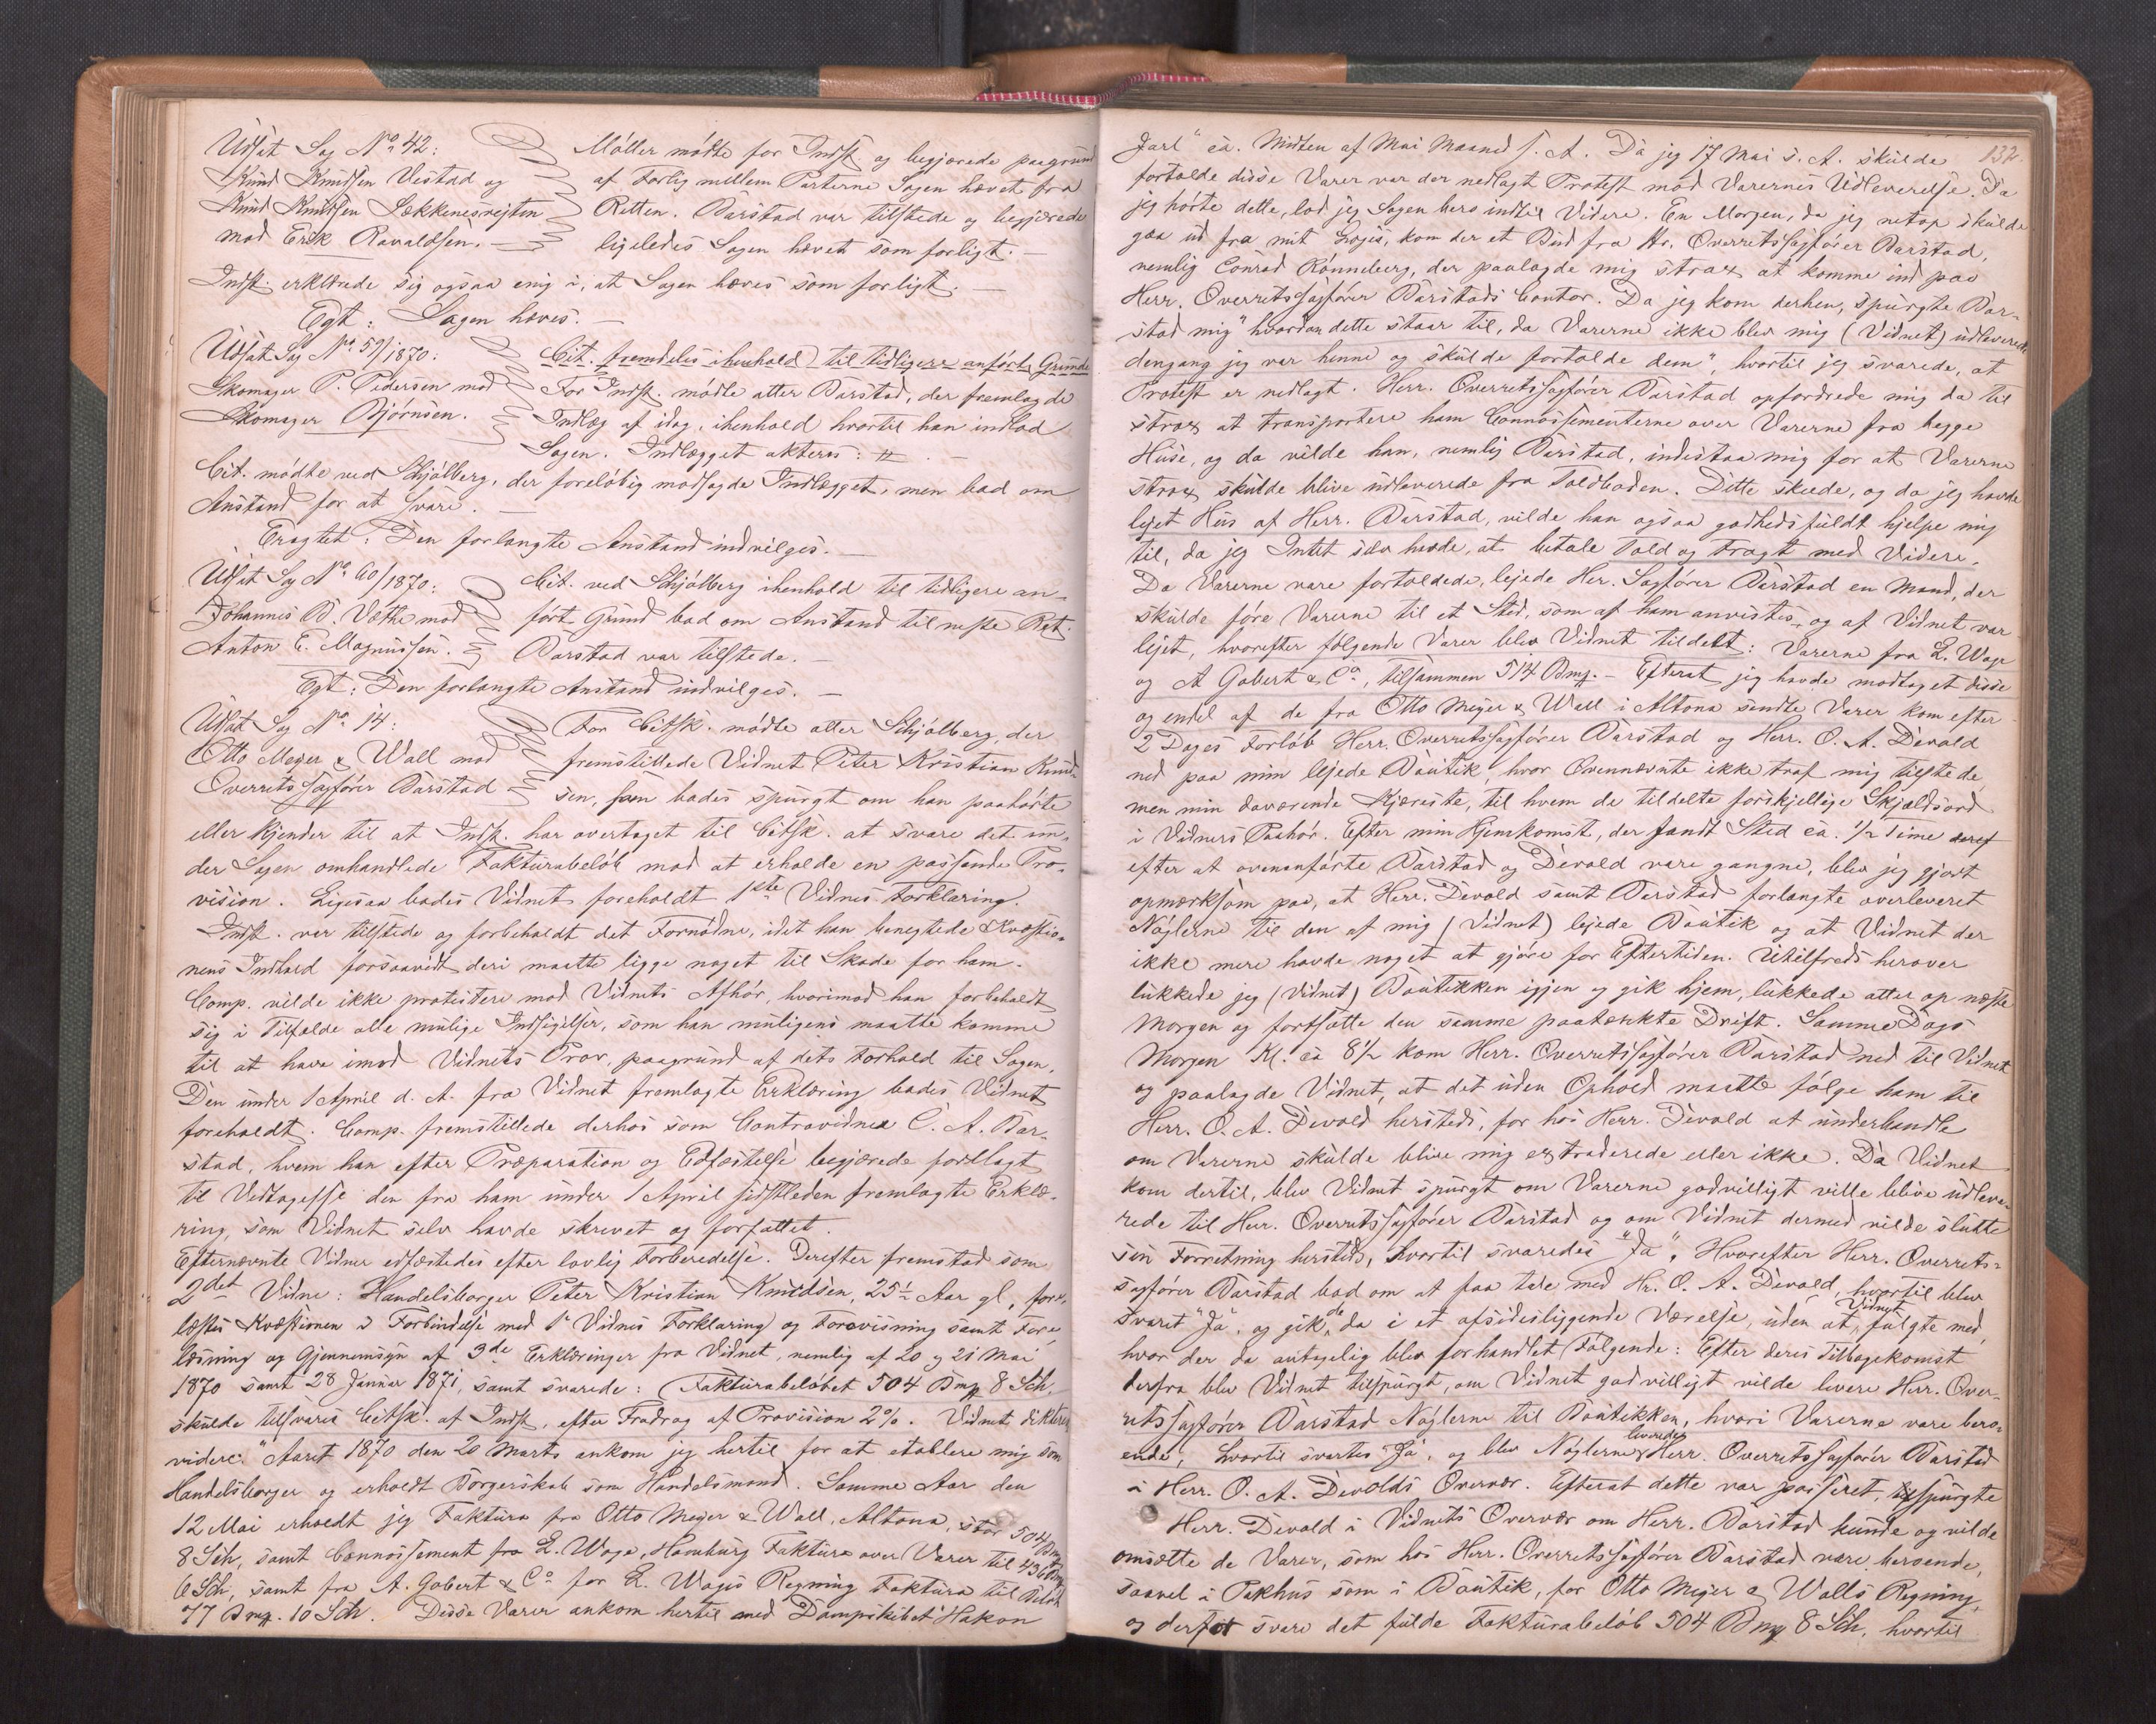 Udsat Sag No 42:
Knud Knudsen Vestad og
Knud Knudsen Sekkenesrejten
mod Erik Ravaldsen. —
Møller mødte for Indst. og begjærede paagrund
af Forlig mellem Parterne Sagen hævet fra
Retten. Barstad var tilstede og begjærede
ligeledes Sagen hævet som forligt. —
Indst. erklærede sig ogsaa enig i, at Sagen hæves som forligt. —
Egt: Sagen hæves. —
Udsat Sag No 59/1870:
Skomager P. Pedersen mod
Skomager Bjørnsen.
Cit. fremdeles ihenhold til tidligere anførte Grunde
For Indst. mødte atter Barstad, der fremlagde
Indlæg af idag, ihenhold hvortil han indlod
Sagen. Indlægget akteres: #
Cit. mødte ved Schjølberg, der foreløbig modsagde Indlægget, men bad om
Anstand for at svare. —
Eragtet: Den forlangte Anstand indvilges. —
Udsat Sag No 60/1870:
Johannes B. Væthe mod
Anton E. Magnussen.
Cit. ved Schjølberg ihenhold til tidligere an-
ført Grund bad om Anstand til neste Ret.
Barstad var tilstede. —
Egt: Den forlangte Anstand indvilges. —
Udsat Sag No 14:
Otto Meyer & Wall mod
Overretssagfører Barstad
For Citsk. mødte atter Schjølberg, der
fremstillede Vidnet Peter Kristian Knud-
sen, som bades spurgt om han paahørte
eller kjender til at Indst. har overtaget til Citsk. at svare det un-
der Sagen omhandlede Fakturabeløb mod at erholde en passende Pro-
vision. Ligesaa bades Vidnet foreholdt 1ste Vidnes Forklaring.
Indst. var tilstede og forbeholdt det Fornødne, idet han benegtede Kvæstio-
nens Indhold forsaavidt deri maatte ligge noget til Skade for ham.
Comp. vilde ikke protestere mod Vidnets Afhør, hvorimod han forbeholdt
sig i Tilfælde alle mulige Indsigelser, som han muligens maatte komme
til at have imod Vidnets Prov, paagrund af dets Forhold til Sagen.
Den under 1 April d. A. fra Vidnet fremlagte Erklæring bades Vidnet
foreholdt. Comp. fremstillede derhos som Contravidne C. A. Bar-
stad, hvem han efter Præparation og Edfæstelse begjærede forelagt
til Vedtagelse den fra ham under 1 April sidstleden fremlagte Erklæ-
ring, som Vidnet selv havde skrevet og forfattet.
Efternævnte Vidner edfæstedes efter lovlig Forberedelse. Derefter fremstod som
2det Vidne: Handelsborger Peter Kristian Knudsen, 25½ Aar gl, fore-
læstes Kvæstionen i Forbindelse med 1ste Vidnes Forklaring og Forevisning samt Fore-
læsning og Gjennemsyn af 3de Erklæringer fra Vidnet, nemlig af 20 og 21 Mai
1870 samt 28 Januar 1871, samt svarede: Fakturabeløbet 504 Bmk 8 Sch,
skulde tilsvares Citsk. af Indst, efter Fradrag af Provision 2%. Vidnet dikterer
videre: "Aaret 1870 den 20 Marts ankom jeg hertil for at etablere mig som
Handelsborger og erholdt Borgerskab som Handelsmand. Samme Aar den
12 Mai erholdt jeg Faktura fra Otto Meyer & Wall, Altona, stor 504 Bmk
8 Sch, samt Connossement fra L. Wage, Hamburg Faktura over Varer til 436 Bmk
6 Sch, samt fra A. Gobert & Co for L. Wages Regning Faktura til Beløb
77 Bmk. 10 Sch. Disse Varer ankom hertil med Dampskibet "Hakon
132.
Jarl" ca. Midten af Mai Maaned s. A. Da jeg 17 Mai s. A. skulde
fortolde disse Varer var der nedlagt Protest mod Varernes Udleverelse. Da
jeg hørte dette, lod jeg Sagen bero indtil Videre. En Morgen, da jeg netop skulde
gaa ud fra mit Logis, kom der et Bud fra Hr. Overretssagfører Barstad,
nemlig Conrad Rønneberg, der paalagde mig strax at komme ind paa
Herr. Overretssagfører Barstads Contor. Da jeg kom derhen, spurgte Bar-
stad mig "hvordan dette staar til, da Varerne ikke blev mig (Vidnet) udleverede
dengang jeg var henne og skulde fortolde dem", hvortil jeg svarede, at
Protest er nedlagt. Herr. Overretssagfører Barstad opfordrede mig da til
strax at transportere ham Connossementerne over Varerne fra begge
Huse, og da vilde han, nemlig Barstad, indestaa mig for at Varerne
strax skulde blive udleverede fra Toldboden. Dette skede, og da jeg havde
lejet Hus af Herr. Barstad, vilde han ogsaa godhedsfuldt hjelpe mig
til, da jeg Intet selv havde, at betale Told og Fragt med Videre.
Da Varerne vare fortoldede, lejede Her. Sagfører Barstad en Mand, der
skulde føre Varerne til et Sted, som af ham anvistes, og af Vidnet var
lejet, hvorefter følgende Varer blev Vidnet tildelt: Varerne fra L. Wage
og A Gobert & Co, tilsammen 514 Bmk. — Efterat jeg havde modtaget disse
og endel af de fra Otto Meyer & Wall i Altona sendte Varer kom efter
2 Dages Forløb Herr. Overretssagfører Barstad og Herr. O. A. Devold
ned paa min lejede Boutik, hvor Ovennævnte ikke traf mig tilstede,
men min daværende Kjæreste, til hvem de tildelte forskjellige Skjældsord
i Vidners Paahør. Efter min Hjemkomst, der fandt Sted ca. ½ Time deref
efter at ovenanførte Barstad og Devold vare gangne, blev jeg gjort
opmærksom paa, at Herr. Devold samt Barstad forlangte overleveret
Nøglerne til den af mig (Vidnet) lejede Boutik og at Vidnet der
ikke mere havde noget at gjøre for Eftertiden. Utilfreds herover
lukkede jeg (Vidnet) Boutikken igjen og gik hjem, lukkede atter op næste
Morgen og fortsatte den samme paatænkte Drift. Samme Dags
Morgen Kl. ca 8½ kom Herr. Overretssagfører Barstad ned til Vidnet
og paalagde Vidnet, at det uden Ophold maatte følge ham til
Herr. O. A. Devold hersteds, for hos Herr. Devold at underhandle
om Varerne skulde blive mig extraderede eller ikke. Da Vidnet
kom dertil, blev Vidnet spurgt om Varerne godvilligt ville blive udleve-
rede til Herr. Overretssagfører Barstad og om Vidnet dermed vilde slutte
sin Forretning hersteds, hvortil svaredes "Ja". Hvorefter Herr. Overrets-
sagfører Barstad bad om at faa tale med Hr. O. A. Devold, hvortil blev
svaret "Ja", og gik de da i et afsidesliggende Værelse, uden at Vidnet fulgte med,
hvor der da antagelig blev forhandlet Følgende: Efter deres Tilbagekomst
derfra blev Vidnet tilspurgt, om Vidnet godvilligt vilde levere Herr. Over-
retssagfører Barstad Nøglerne til Boutikken, hvori Varerne vare bero-
ende, hvortil svartes "Ja", og blev Nøglerne leverede Herr. Overretssagfører Barstad
i Herr. O. A. Devolds Overvær. Efterat dette var passeret, spurgte
Herr. Devold i Vidnets Overvær om Herr. Barstad kunde og vilde
omsætte de Varer, som hos Herr. Overretssagfører Barstad vare beroende,
saavel i Pakhus som i Boutik, for Otto Meyer & Walls Regning,
og derfor svare det fulde Fakturabeløb 504 Bmk 8 Sch, hvortil